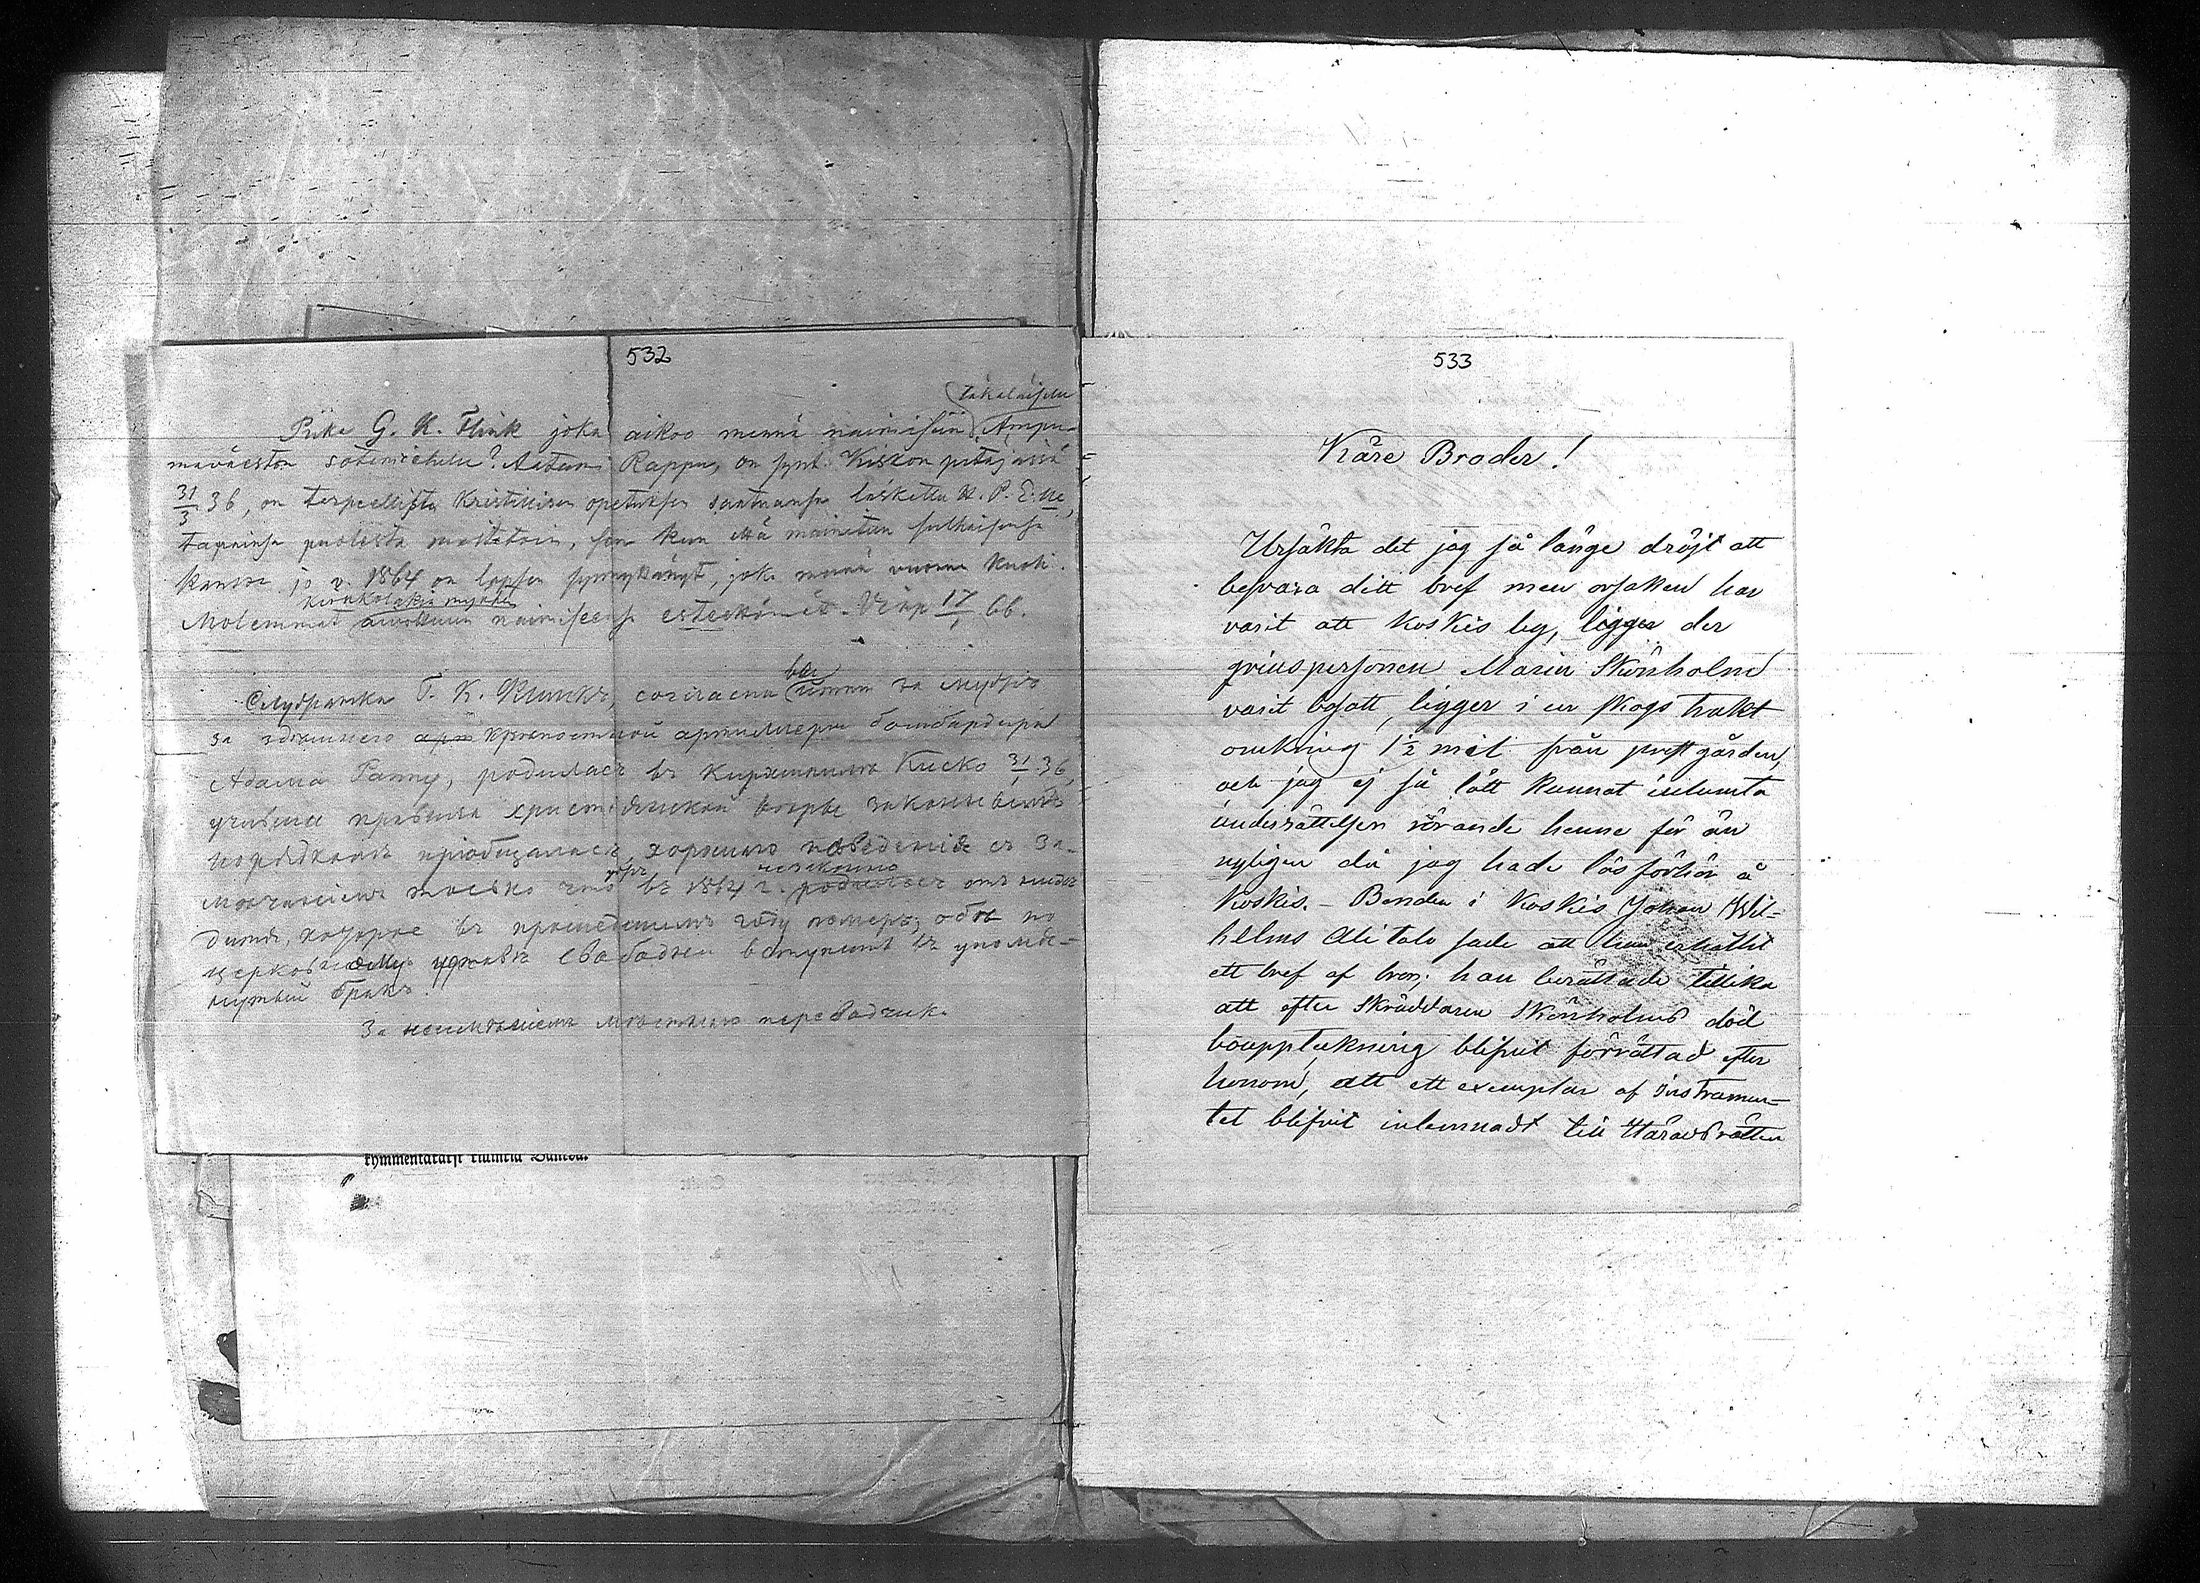 532
täkäläisen
Piika G. K. Flink joka aikoo mennä naimisiin Ampu-
maväestön sotamiehelle? Aatami Rappu, on synt. Kiskon pitäjässä
31/3 36, on tarpeellista kristillisen opetuksen saatuansa laskettu H. P. E:lle,
tapainsa puolesta moitetoin, sen kun että mainitun sulhaisensa
kanssa jo v. 1864 on lapsen synnyttänyt, joka mennä vuonna kuoli.
kirkkolakia myöten
Molemmat avioliittoon naimiseensa esteettömät. Wiip 17/1 66.
вы
Служанка Г. К. Флинкъ, согласна итти за мужъ
за здѣшнего арт крѣпостной артиллеріи бомбардира
Адама Раппу, родилась въ Кирхшпилѣ Киско 31/3 36,
училась правила христіанской вообще законы
порядкомъ пріобщалась, хорошаго поведенія съ за-
незаконно
мѣчаніемъ только что въ 1864 г. родилась отъ нихъ
дитя, которое въ прошедшемъ году померъ; оба по
церковному уставу свободны вступить въ упомя-
нутый бракъ.
За неимѣніемъ мѣстнаго переводчик.
kymmentatatj
533
Käre Broder!
Ursäkta det jag så länge dröjt att
besvara ditt bref men orsaken har
varit att Koskis by, ligger der
qvinspersonen Maria Skönholm
varit bosatt, ligger i en skogs trakt
omkring 1 1/2 mil från prestgården,
och jag ej så lätt kunnat inhämta
underrättelser rörande henne för än
nyligen då jag hade läsförhör å
Koskis. - Bonden i Koskis Johan Wil-
helms Alitalo sade att han erhållit
ett bref af bror; han berättade tillika
att efter Skräddaren Skönholms död
bouppteckning blifvit förrättad efter
honom, att ett exemplar af instrumen-
tet blifvit inlemnadt till Häradsrätten